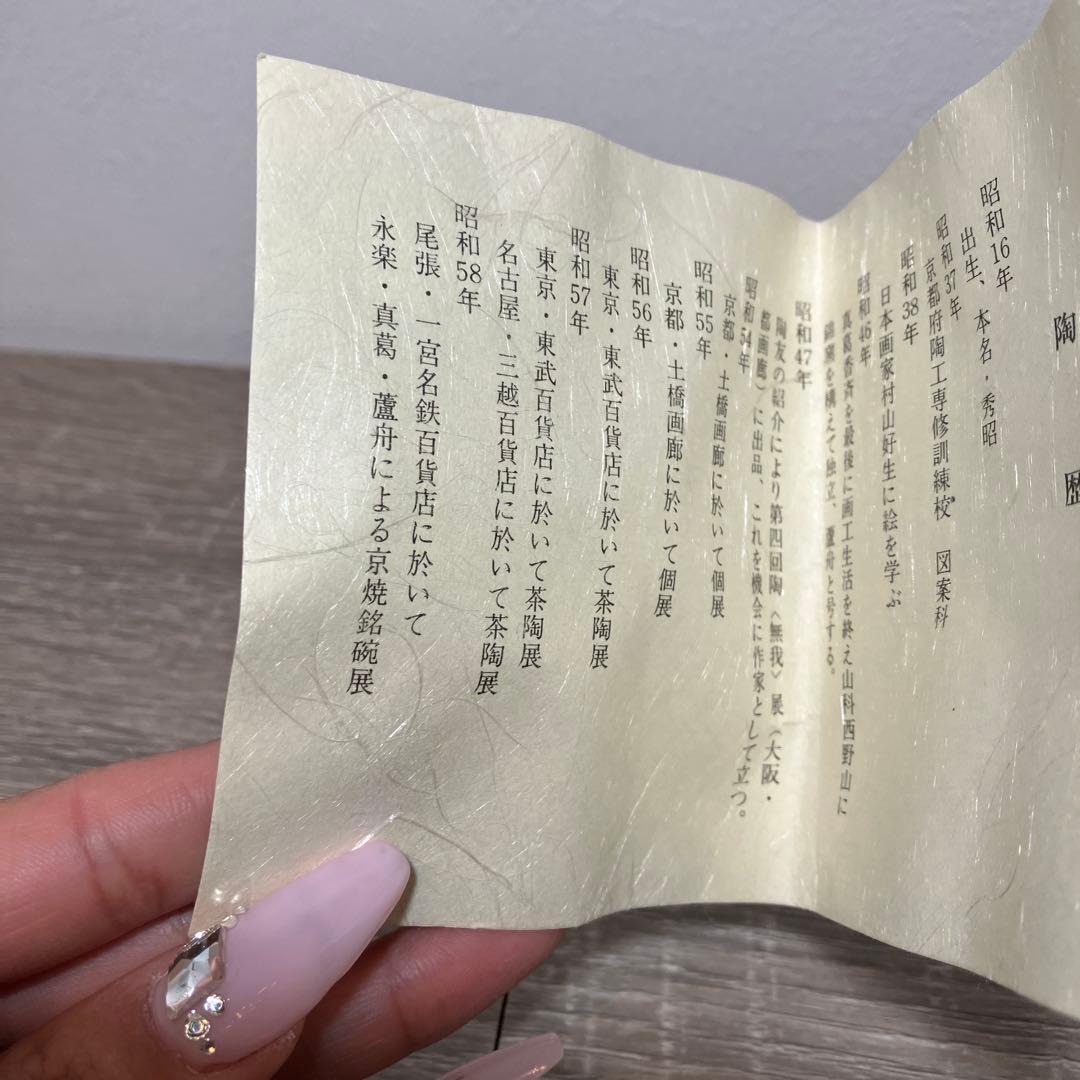 陶歴
昭和16年
出生、本名・秀昭
昭和37年
京都府陶工専修訓練校 図案科
昭和38年
日本画家村山好生に絵を学ぶ
昭和46年
真葛香斉を最後に画工生活を終え山科西野山に
錦窯を構えて独立、蘆舟と号する。
昭和47年
陶友の紹介により第四回陶〈無我〉展（大阪・
都画廊）に出品、これを機会に作家として立つ。
昭和54年
京都・土橋画廊に於いて個展
昭和55年
京都・土橋画廊に於いて個展
昭和56年
東京・東武百貨店に於いて茶陶展
昭和57年
東京・東武百貨店に於いて茶陶展
名古屋・三越百貨店に於いて茶陶展
昭和58年
尾張・一宮名鉄百貨店に於いて
永楽・真葛・蘆舟による京焼銘碗展